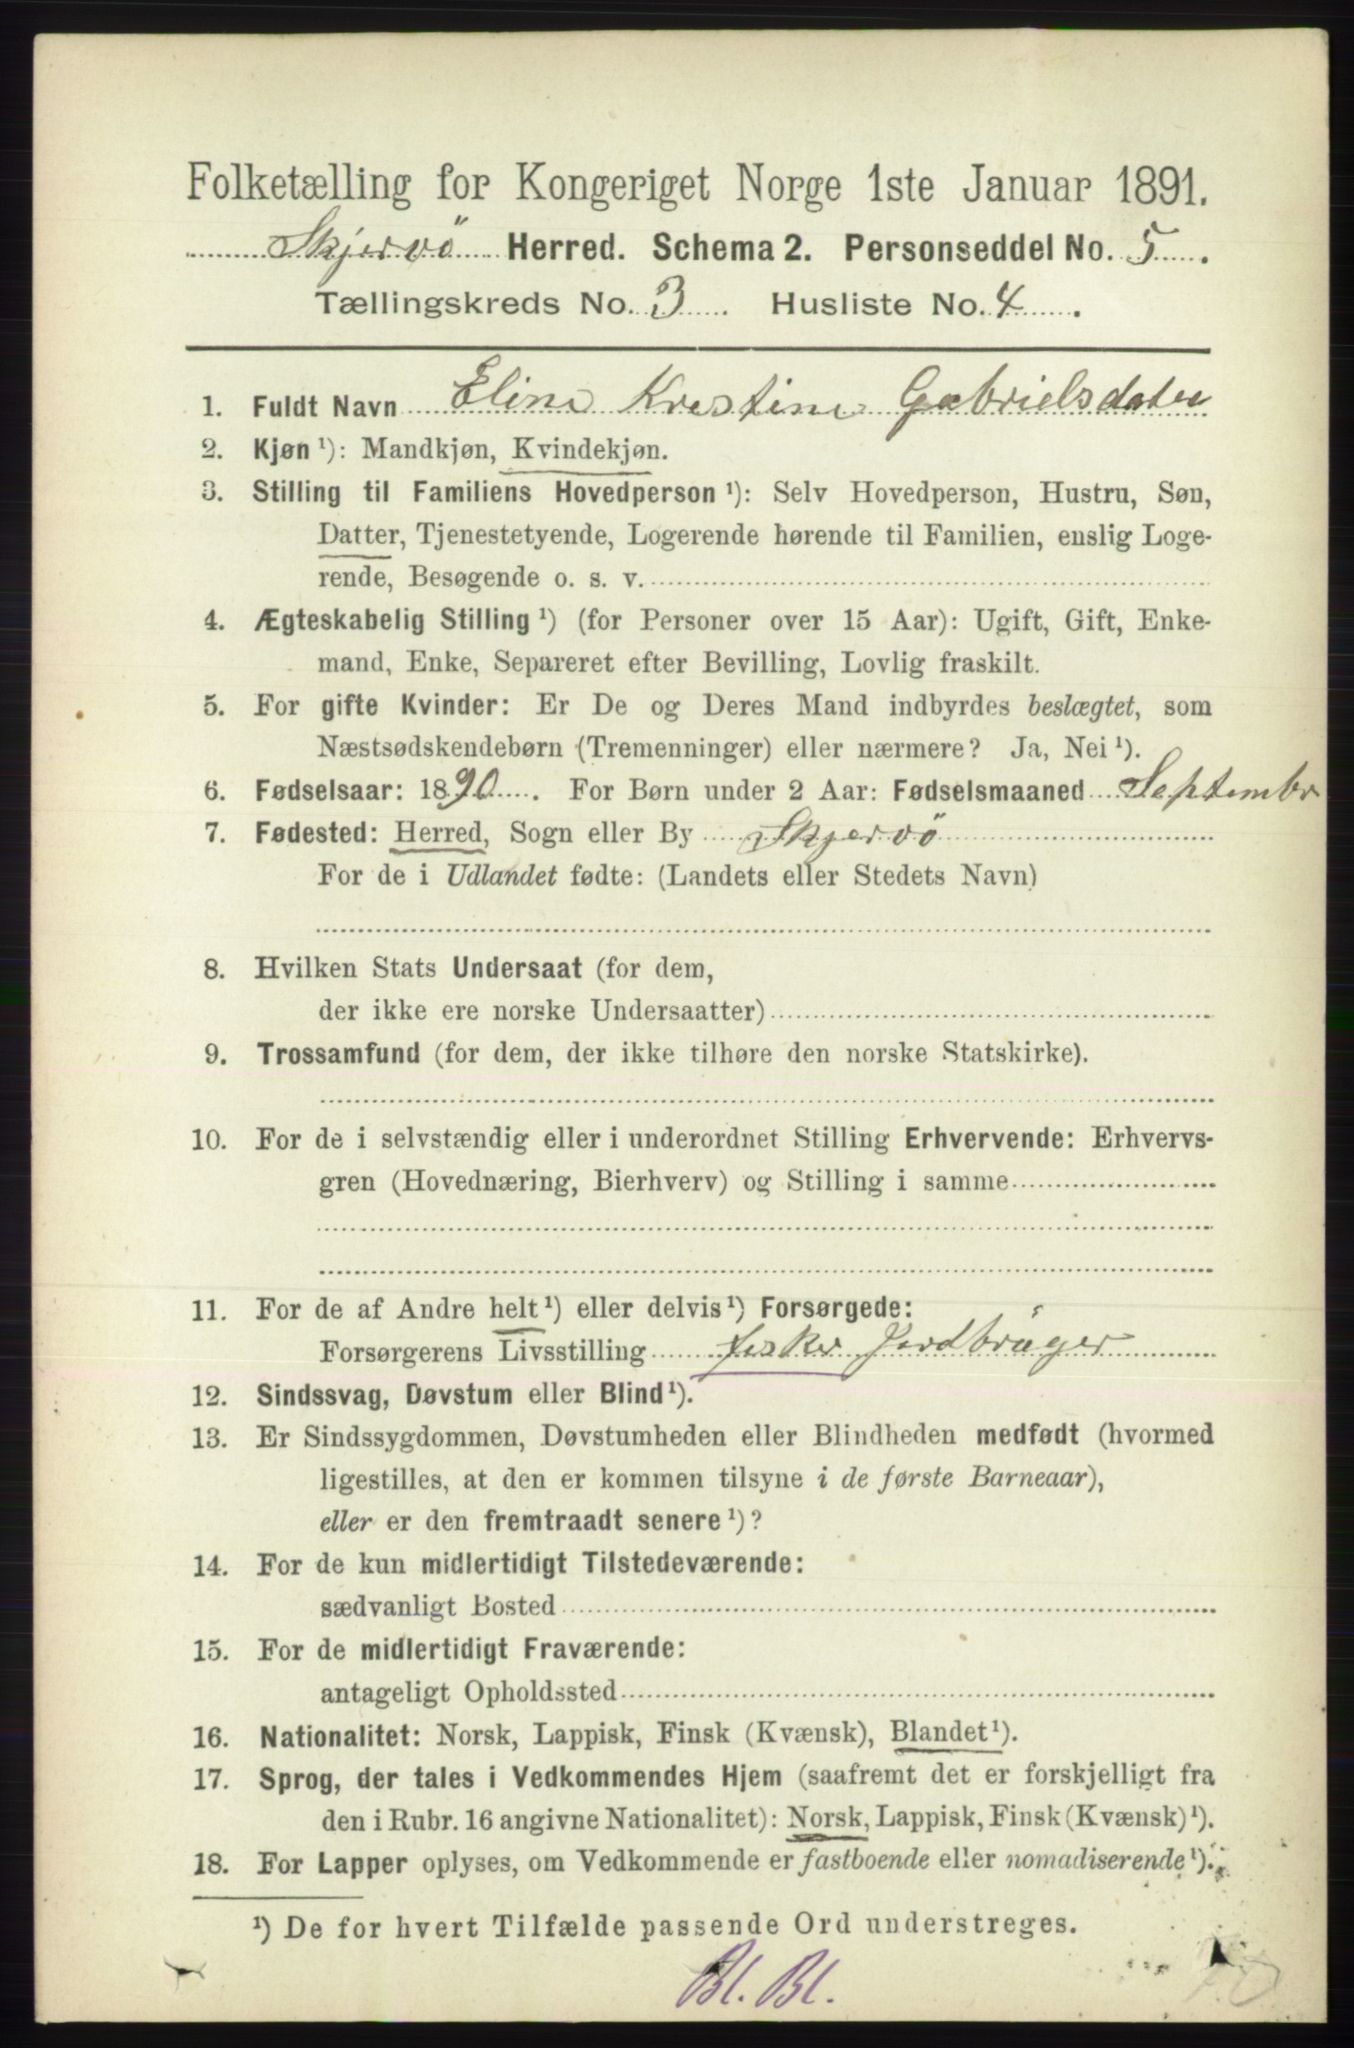 Folketælling for Kongeriget Norge 1ste Januar 1891.
Skjervö Herred. Schema 2. Personseddel No. 5.
Tællingskreds No. 3. Husliste No. 4.
1. Fuldt Navn Eline Kristine Gabrielsdatter
2. Kjøn ¹): Mandkjøn, Kvindekjøn.
3. Stilling til Familiens Hovedperson ¹): Selv Hovedperson, Hustru, Søn,
Datter, Tjenestetyende, Logerende hørende til Familien, enslig Loge-
rende, Besøgende o. s. v.
4. Ægteskabelig Stilling ¹) (for Personer over 15 Aar): Ugift, Gift, Enke-
mand, Enke, Separeret efter Bevilling, Lovlig fraskilt.
5. For gifte Kvinder: Er De og Deres Mand indbyrdes beslægtet, som
Næstsødskendebørn (Tremenninger) eller nærmere? Ja, Nei ¹).
6. Fødselsaar: 1890. For Børn under 2 Aar: Fødselsmaaned Septembr
7. Fødested: Herred, Sogn eller By Skjervö
For de i Udlandet fødte: (Landets eller Stedets Navn)
8. Hvilken Stats Undersaat (for dem,
der ikke ere norske Undersaatter)
9. Trossamfund (for dem, der ikke tilhøre den norske Statskirke).
10. For de i selvstændig eller i underordnet Stilling Erhvervende: Erhvervs-
gren (Hovednæring, Bierhverv) og Stilling i samme
11. For de af Andre helt ¹) eller delvis ¹) Forsørgede:
Forsørgerens Livsstilling fisker Jordbrüger
12. Sindssvag, Døvstum eller Blind ¹).
13. Er Sindssygdommen, Døvstumheden eller Blindheden medfødt (hvormed
ligestilles, at den er kommen tilsyne i de første Barneaar),
eller er den fremtraadt senere ¹)?
14. For de kun midlertidigt Tilstedeværende:
sædvanligt Bosted
15. For de midlertidigt Fraværende:
antageligt Opholdssted
16. Nationalitet: Norsk, Lappisk, Finsk (Kvænsk), Blandet ¹).
17. Sprog, der tales i Vedkommendes Hjem (saafremt det er forskjelligt fra
den i Rubr. 16 angivne Nationalitet): Norsk, Lappisk, Finsk (Kvænsk) ¹).
18. For Lapper oplyses, om Vedkommende er fastboende eller nomadiserende ¹).
¹) De for hvert Tilfælde passende Ord understreges.
Bl. Bl.